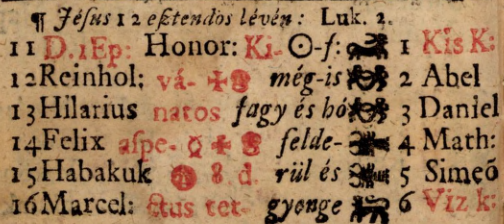 ¶ Jésus 12 esztendős lévén: Luk. 2.
11 D. 1 Ep: Honor: Ki- ☉-f: 1 Kis K:
12 Reinhol: vá- még-is 2 Abel
13 Hilarius natos fagy és hó 3 Daniel
14 Felix aspe- felde- 4 Math:
15 Habakuk 8 d. rül és 5 Simeō
16 Marcel: ctus tet- gyenge 6 Viz k: